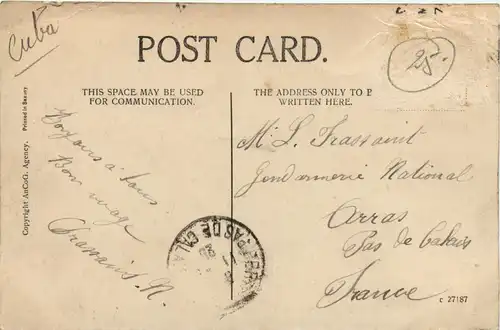 Cuba
POST CARD.
25
THIS SPACE MAY BE USED
FOR COMMUNICATION.
THE ADDRESS ONLY TO B
WRITTEN HERE.
Copyright AnCoG. Agency.
Printed in Saxony
Bonjours à tous
Bon
M. L. Frassaint
Gendarmerie National
Arras
Pas de Calais
France
PAS DE CALA
c 27187